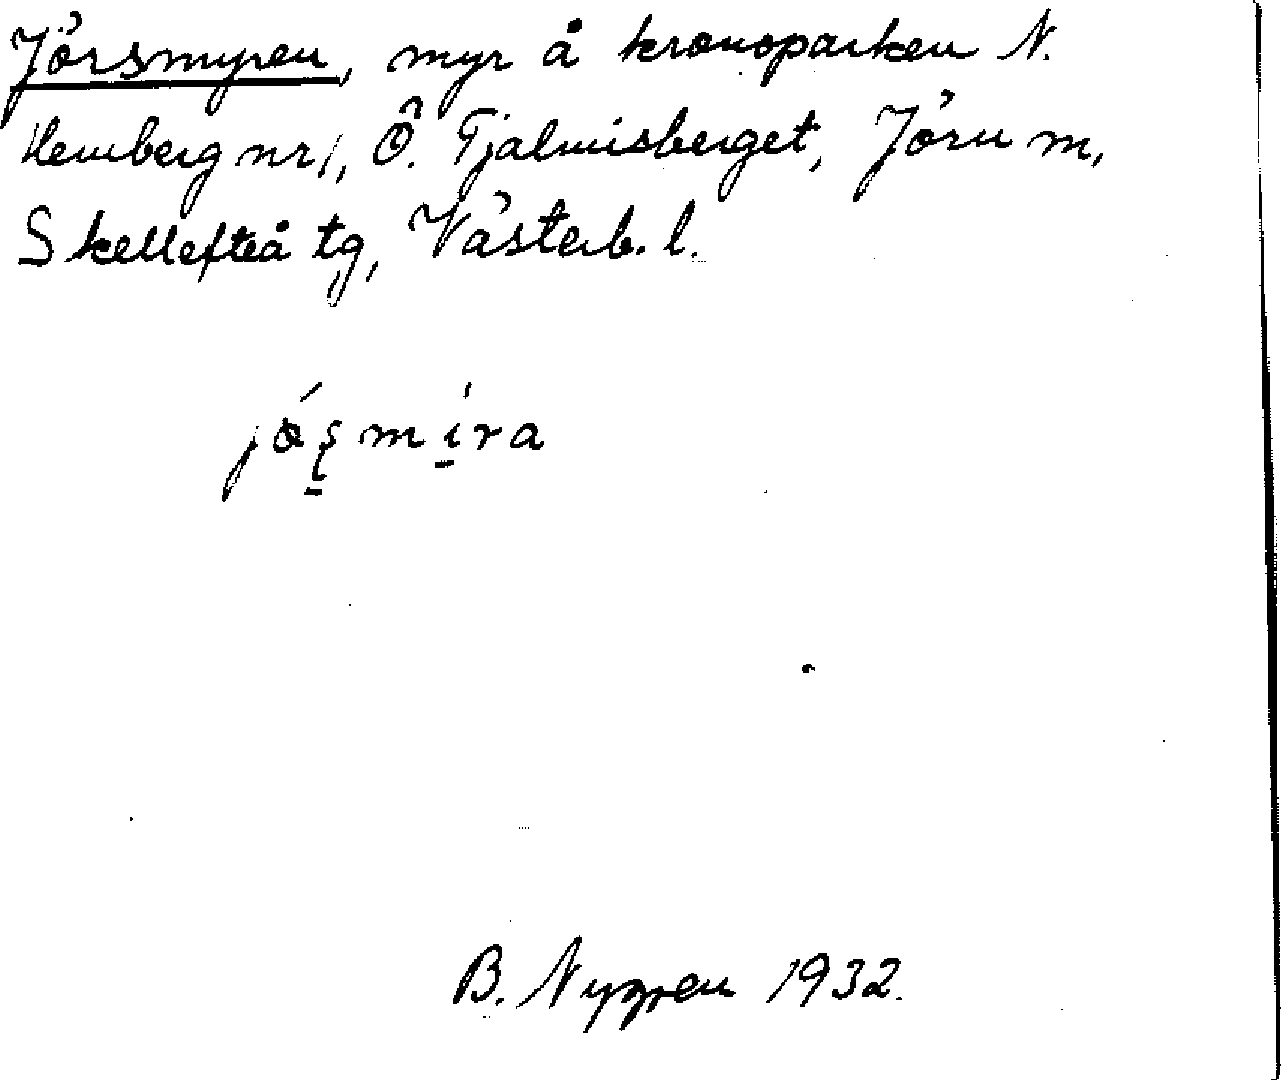 Jörsmyren, myr å kronoparken N.
Hemberg nr 1, Ö. Tjalmisberget, Jörn m,
Skellefteå tg, Västerb. l.
jǿs̱mi̱ra
B. Nygren 1932.